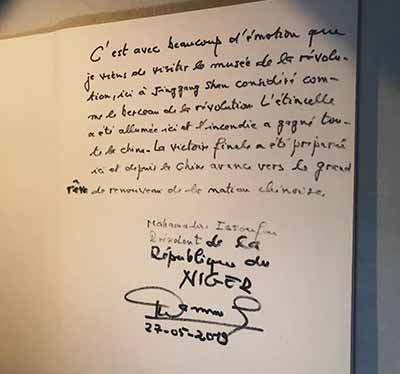 C'est avec beaucoup d'émotion que
je viens de visiter le musée de la révolu-
tion, ici à Jinggang shan considéré com-
me le berceau de la révolution. L'étincelle
a été allumée ici et l'incendie a gagné tou-
te la chine. La victoire finale a été préparée
ici et depuis la Chine avance vers le grand
rêve de renouveau de la nation chinoise.
Mahamadou Issoufou
Président de la
République du
NIGER
27-05-2019